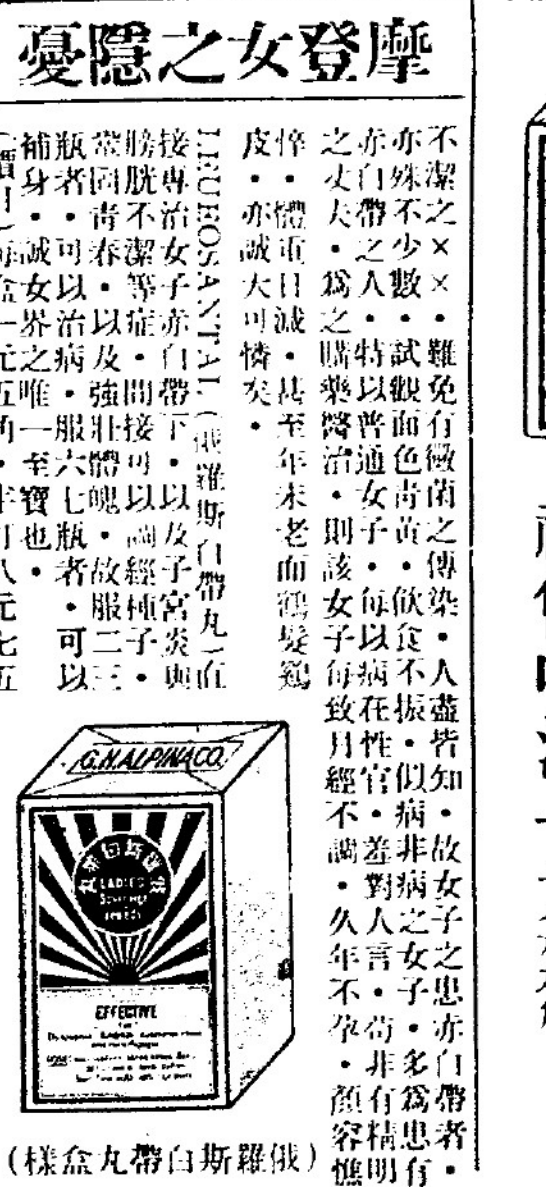 摩登女之隱憂
不潔之××．難免有微菌之傳染．人盡皆知．故女子之患赤白帶者．
亦殊不少數．試觀面色青黃．飲食不振．似病非病之女子．亦多為患有
赤白帶之人．特以普通女子．每以病在性官．羞對人言．苟非有精明
之丈夫．為之購藥醫治．則該女子每致月經不調．久年不孕．顏容憔
悴．體重日減．甚至年未老而鶴髮鷄
皮．亦誠大可憐矣．
LEUKOSANTAL(俄羅斯白帶丸)直
接專治女子赤白帶下．以及子宮炎與
膀胱不潔等症．間接可以調經種子．
常囘青春．以及強壯體魄．故服二三
瓶者．可以治病．服六七瓶者．可以
補身．誠女界之唯一至寶也．
(價目)每盒一元五角．半打八元七五
G.H.ALPINA CO.
LADIES
EFFECTIVE
(俄羅斯白帶丸盒樣)